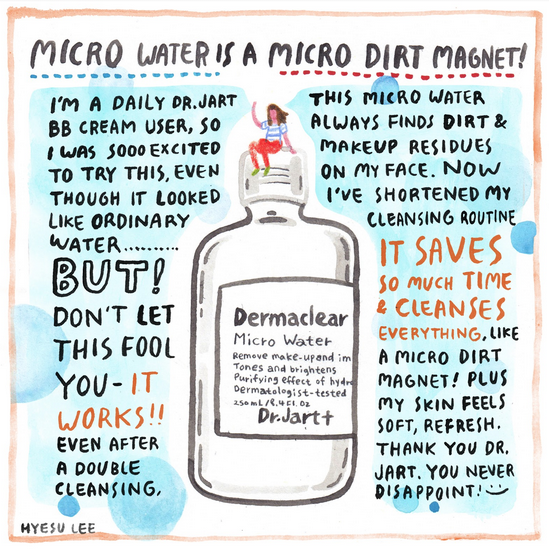 MICRO WATER IS A MICRO DIRT MAGNET!
I'M A DAILY DR.JART
BB CREAM USER, SO
I WAS SOOO EXCITED
TO TRY THIS, EVEN
THOUGH IT LOOKED
LIKE ORDINARY
WATER..........
BUT!
DON'T LET
THIS FOOL
YOU-IT
WORKS!!
EVEN AFTER
A DOUBLE
CLEANSING,
THIS MICRO WATER
ALWAYS FINDS DIRT &
MAKEUP RESIDUES
ON MY FACE. NOW
I'VE SHORTENED MY
CLEANSING ROUTINE
IT SAVES
SO MUCH TIME
& CLEANSES
EVERYTHING, LIKE
A MICRO DIRT
MAGNET! PLUS
MY SKIN FEELS
SOFT, REFRESH.
THANK YOU DR.
JART. YOU NEVER
DISAPPOINT!
Dermaclear
Micro Water
Remove make-up and im
Tones and brightens
Purifying effect of hydro
Dermatologist-tested
250mL/8.4Fl.Oz
Dr.Jart+
HYESU LEE